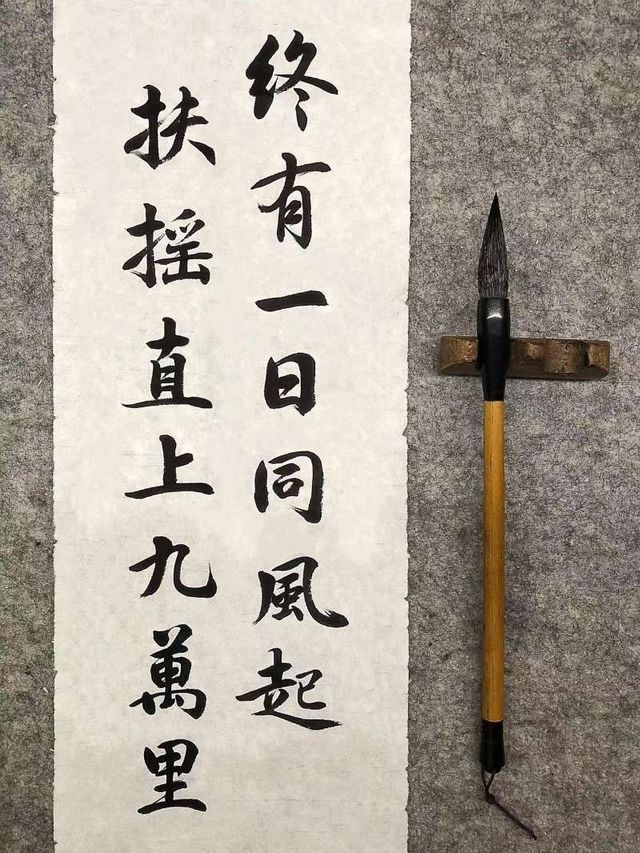 终有一日同風起
扶摇直上九萬里